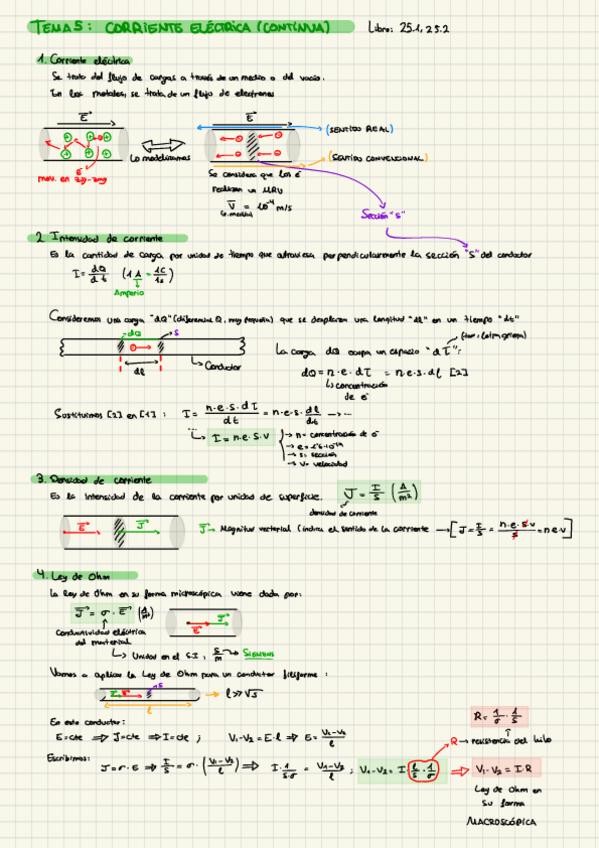 TEMA 5: CORRIENTE ELÉCTRICA (CONTÍNUA) Libro: 25.1, 25.2
1. Corriente eléctrica
Se trata del flujo de cargas a través de un medio o del vacío.
En los metales, se trata de un flujo de electrones
E E
(SENTIDO REAL)
Lo modelizamos
(SENTIDO CONVENCIONAL)
mov. en zig-zag
Se considera que los e⁻
realizan un MRU
V = 10⁻⁴ m/s
Sección "S"
2 Intensidad de corriente
Es la cantidad de carga por unidad de tiempo que atraviesa perpendicularmente la sección "S" del conductor
I = dQ/dt (1A = 1C/1s)
Amperio
Consideremos una carga "dQ" (diferencial Q, muy pequeña) que se desplaza una longitud "dl" en un tiempo "dt"
dQ S
La carga dQ ocupa un espacio "dτ":
Conductor
dl
dQ = n·e·dτ = n·e·s·dl [2]
concentración
de e⁻
Sustituimos [2] en [1]: I = n·e·s·dl/dt = n·e·s·dl/dt
I = n·e·s·v
n = concentración de e⁻
s = sección
v = velocidad
3. Densidad de corriente
Es la intensidad de la corriente por unidad de superficie. J = I/S (A/m²)
densidad de corriente
E J J → Magnitud vectorial (indica el sentido de la corriente → [J = I/S = n·e·s·v/s = n e v]
4. Ley de Ohm
La ley de Ohm en su forma microscópica viene dada por:
J = σ · E
J
E
Conductividad eléctrica
del material
Unidad en el S.I; S/m → SIEMENS
Vamos a aplicar la Ley de Ohm para un conductor filiforme:
S
l >> √S
l
En este conductor:
E = cte ⇒ J = cte ⇒ I = cte ; V₁-V₂ = E·l ⇒ E = V₁-V₂/l
R = 1/σ · l/S
R → resistencia del hilo
Escribimos: J = σ·E ⇒ I/S = σ · (V₁-V₂/l) ⇒ I · 1/S·σ = V₁-V₂/l ; V₁-V₂ = I · l/S · 1/σ ⇒ V₁-V₂ = I·R
Ley de Ohm en
su forma
MACROSCÓPICA